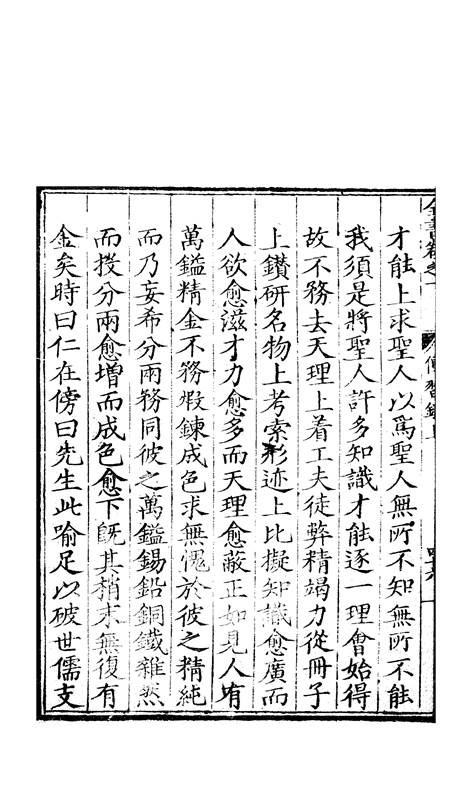 全書卷之一 傳習錄上
才能上求聖人以爲聖人無所不知無所不能
我須是將聖人許多知識才能逐一理會始得
故不務去天理上着工夫徒弊精竭力從冊子
上鑚研名物上考索形迹上比擬知識愈廣而
人欲愈滋才力愈多而天理愈蔽正如見人有
萬鎰精金不務煅鍊成色求無愧於彼之精純
而乃妄希分兩務同彼之萬鎰錫鉛銅鐵雜然
而投分兩愈增而成色愈下旣其梢末無復有
金矣時曰仁在傍曰先生此喻足以破世儒支